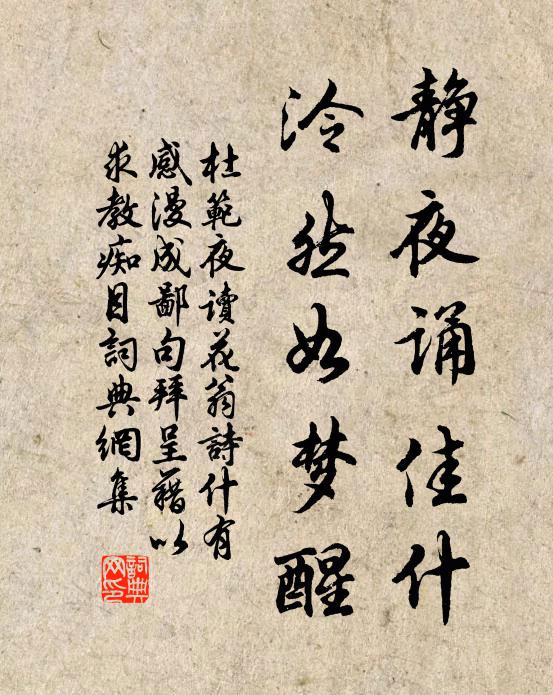 静夜诵佳什
泠然如梦醒
杜範夜讀花翁詩什有
感漫成鄙句拜呈藉以
求教痴目詞典網集
詞典网印